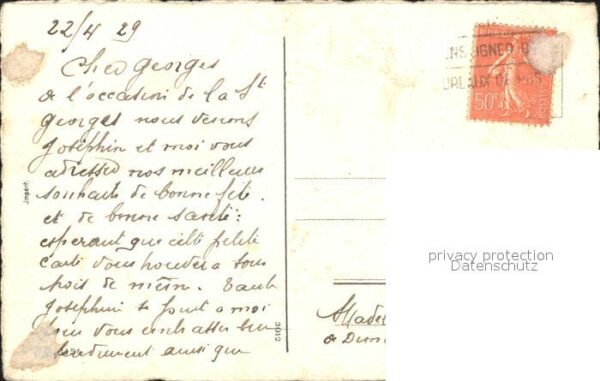 22/4 29
Cher Georges
de l'occasion de la St
Georges nous venons
Josephin et moi vous
adresser nos meilleurs
souhaits de bonne fête
et de bonne santé
esperant que cette petite
carte vous trouvera tous
de même.
Josephin se joint a moi
pour vous embrasser bien
ainsi que
Import.
3012
50c
POSTES
privacy protection
Datenschutz